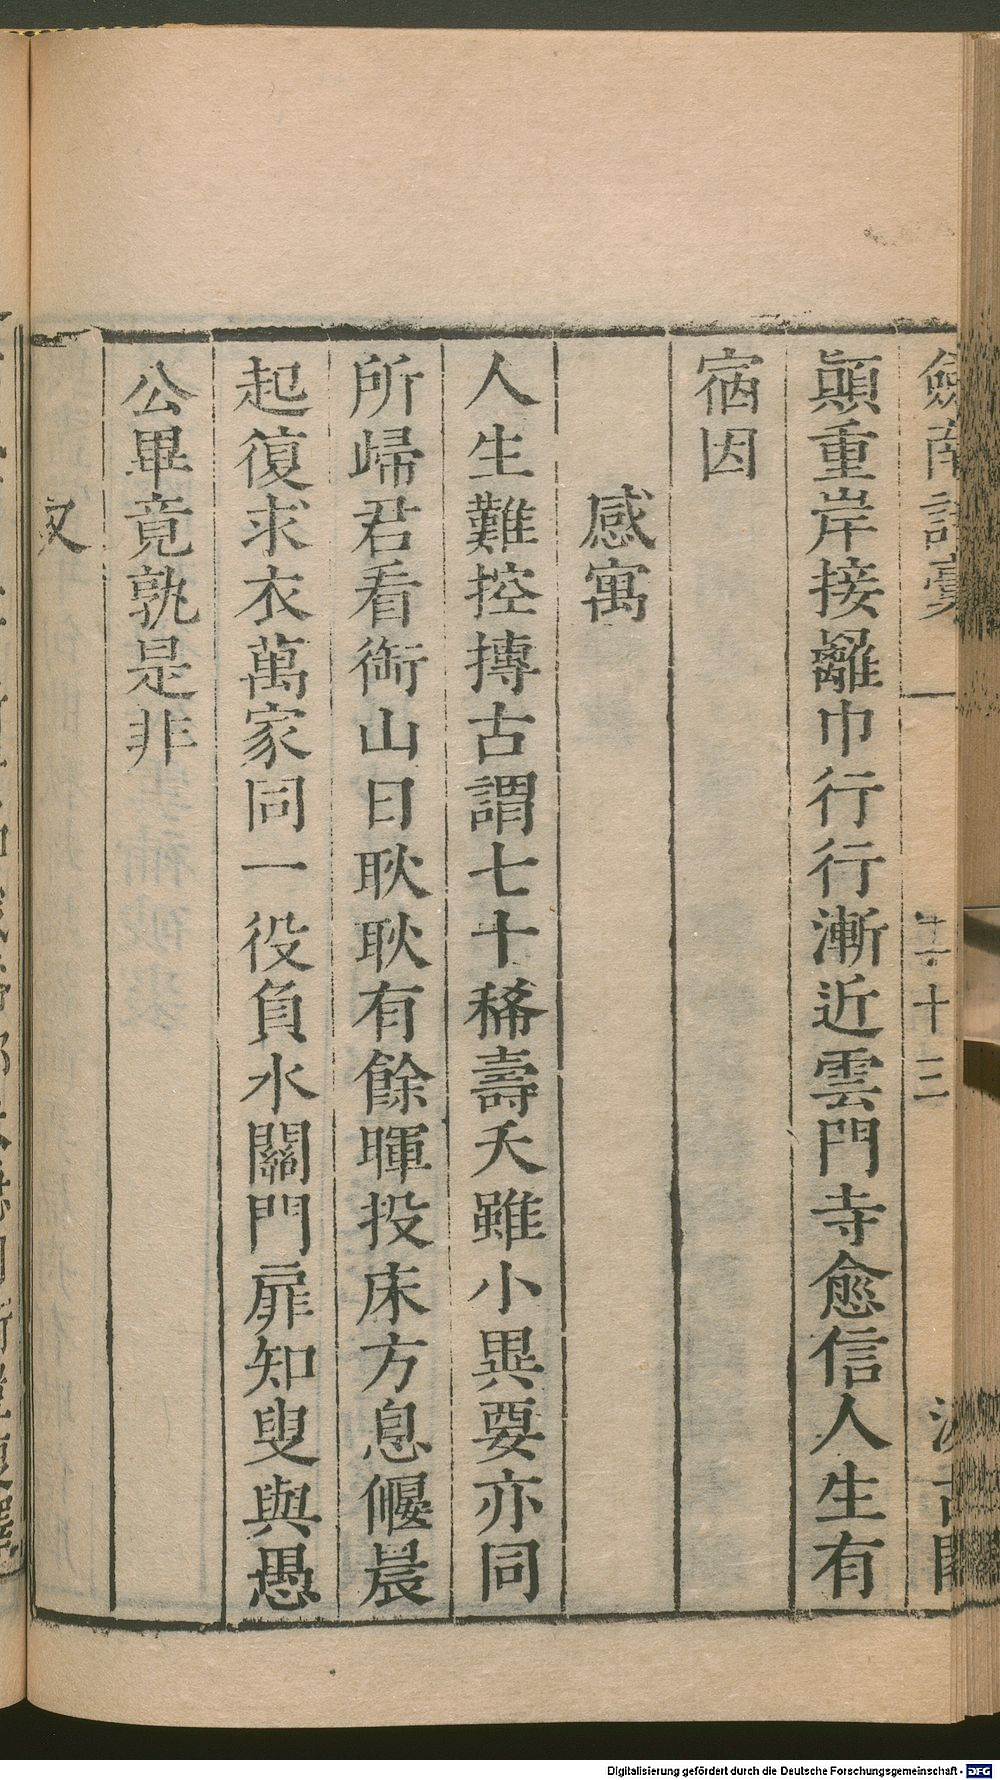 劍南詩藁
十三
汲古閣
顛重岸接䍦巾行行漸近雲門寺愈信人生有
宿因
感寓
人生難控摶古謂七十稀壽夭雖小異要亦同
所歸君看銜山日耿耿有餘暉投床方息偃晨
起復求衣萬家同一役負水闢門扉知叟與愚
公畢竟孰是非
又
Digitalisierung gefördert durch die Deutsche Forschungsgemeinschaft - DFG